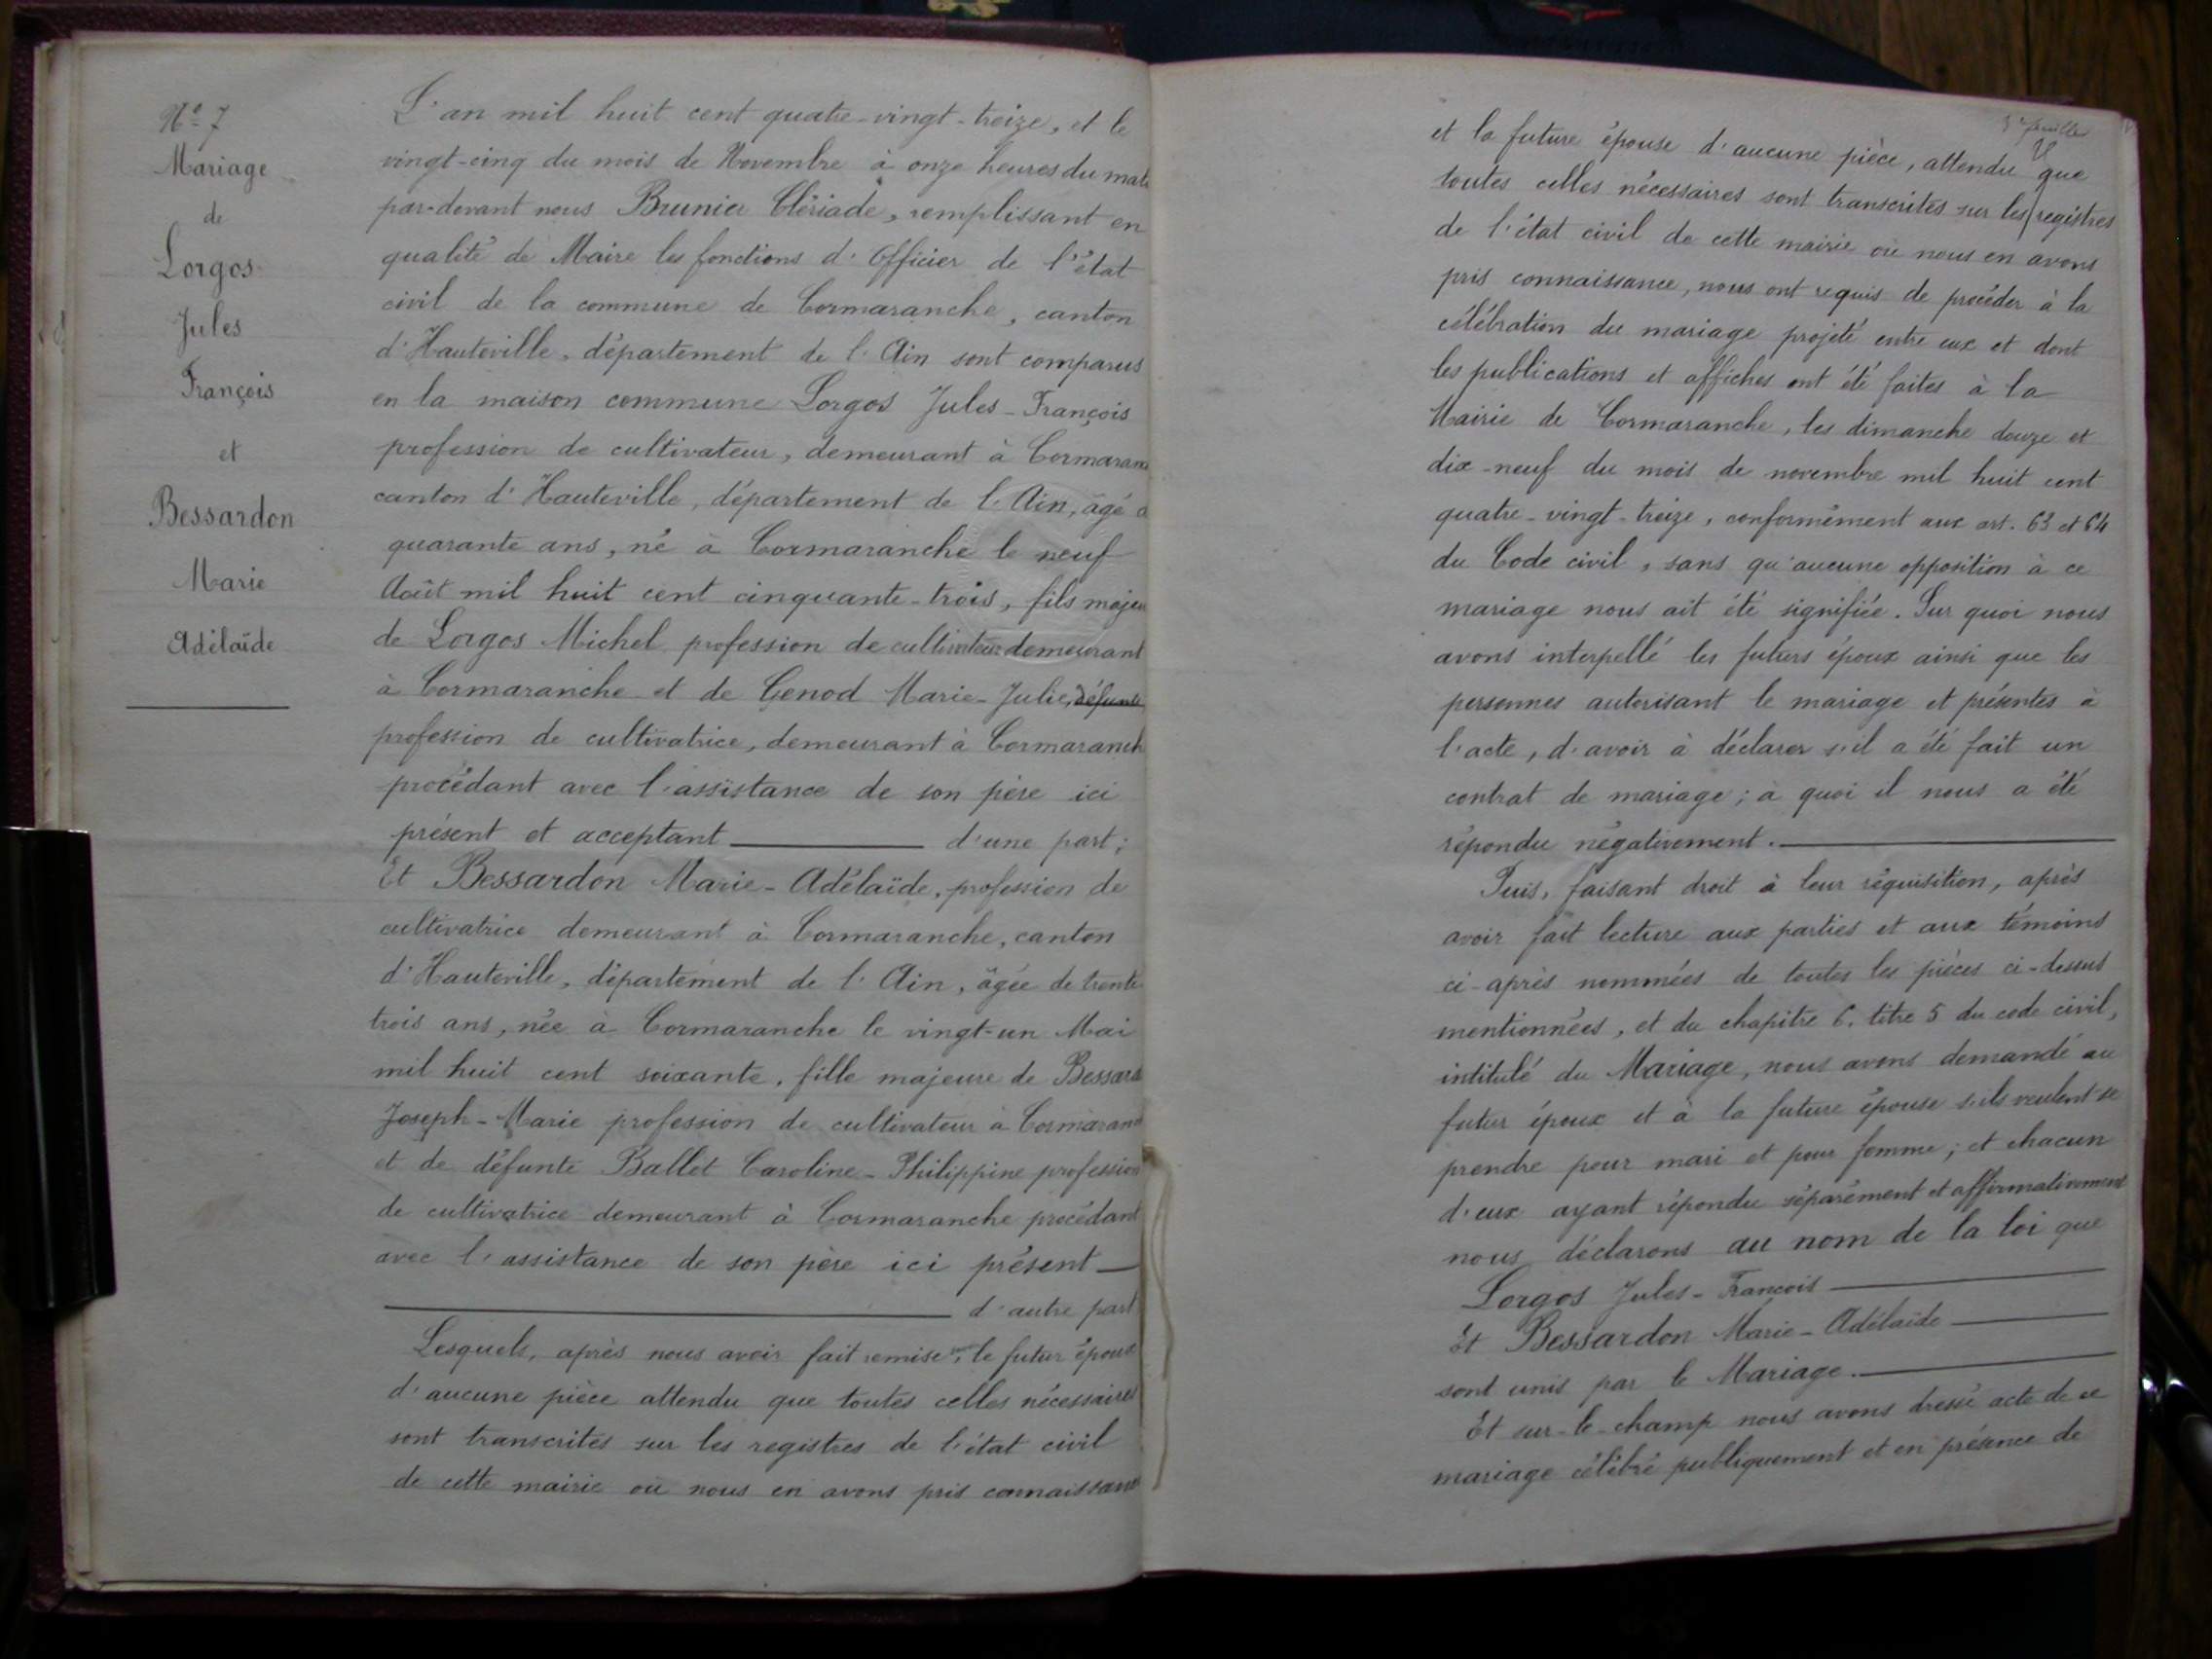 Nº 7
Mariage
de
Lorgos
Jules
François
et
Bessardon
Marie
Adélaïde
L'an mil huit cent quatre-vingt-treize, et le
vingt-cinq du mois de Novembre à onze heures du mati
par-devant nous Brunier Clériade, remplissant en
qualité de Maire les fonctions d'Officier de l'état
civil de la commune de Cormaranche, canton
d'Hauteville, département de l'Ain sont comparus
en la maison commune Lorgos Jules-François
profession de cultivateur, demeurant à Cormaran
canton d'Hauteville, département de l'Ain, âgé d
quarante ans, né à Cormaranche le neuf
Août mil huit cent cinquante-trois, fils majeu
de Lorgos Michel profession de cultivateur demeurant
à Cormaranche et de Genod Marie-Julie, défunte
profession de cultivatrice, demeurant à Cormaranch
procédant avec l'assistance de son père ici
présent et acceptant d'une part;
Et Bessardon Marie-Adélaïde, profession de
cultivatrice demeurant à Cormaranche, canton
d'Hauteville, département de l'Ain, âgée de trente
trois ans, née à Cormaranche le vingt-un Mai
mil huit cent soixante, fille majeure de Bessard
Joseph-Marie profession de cultivateur à Cormaran
et de défunte Ballet Caroline-Philippine profession
de cultivatrice demeurant à Cormaranche procédant
avec l'assistance de son père ici présent
d'autre part
Lesquels, après nous avoir fait remise, le futur époux
d'aucune pièce attendu que toutes celles nécessaires
sont transcrites sur les registres de l'état civil
de cette mairie où nous en avons pris connaissance
3e feuille
et la future épouse d'aucune pièce, attendu que
toutes celles nécessaires sont transcrites sur les registres
de l'état civil de cette mairie où nous en avons
pris connaissance, nous ont requis de procéder à la
célébration du mariage projeté entre eux et dont
les publications et affiches ont été faites à la
Mairie de Cormaranche, les dimanche douze et
dix-neuf du mois de novembre mil huit cent
quatre-vingt-treize, conformément aux art. 63 et 64
du Code civil, sans qu'aucune opposition à ce
mariage nous ait été signifiée. Sur quoi nous
avons interpellé les futurs époux ainsi que les
personnes autorisant le mariage et présentes à
l'acte, d'avoir à déclarer s'il a été fait un
contrat de mariage; à quoi il nous a été
répondu négativement.
Puis, faisant droit à leur réquisition, après
avoir fait lecture aux parties et aux témoins
ci-après nommées de toutes les pièces ci-dessus
mentionnées, et du chapitre 6. titre 5 du code civil,
intitulé du Mariage, nous avons demandé au
futur époux et à la future épouse s'ils veulent se
prendre pour mari et pour femme; et chacun
d'eux ayant répondu séparément et affirmativement
nous déclarons au nom de la loi que
Lorgos Jules-François
Et Bessardon Marie-Adélaïde
sont unis par le Mariage.
Et sur-le-champ nous avons dressé acte de ce
mariage célébré publiquement et en présence de